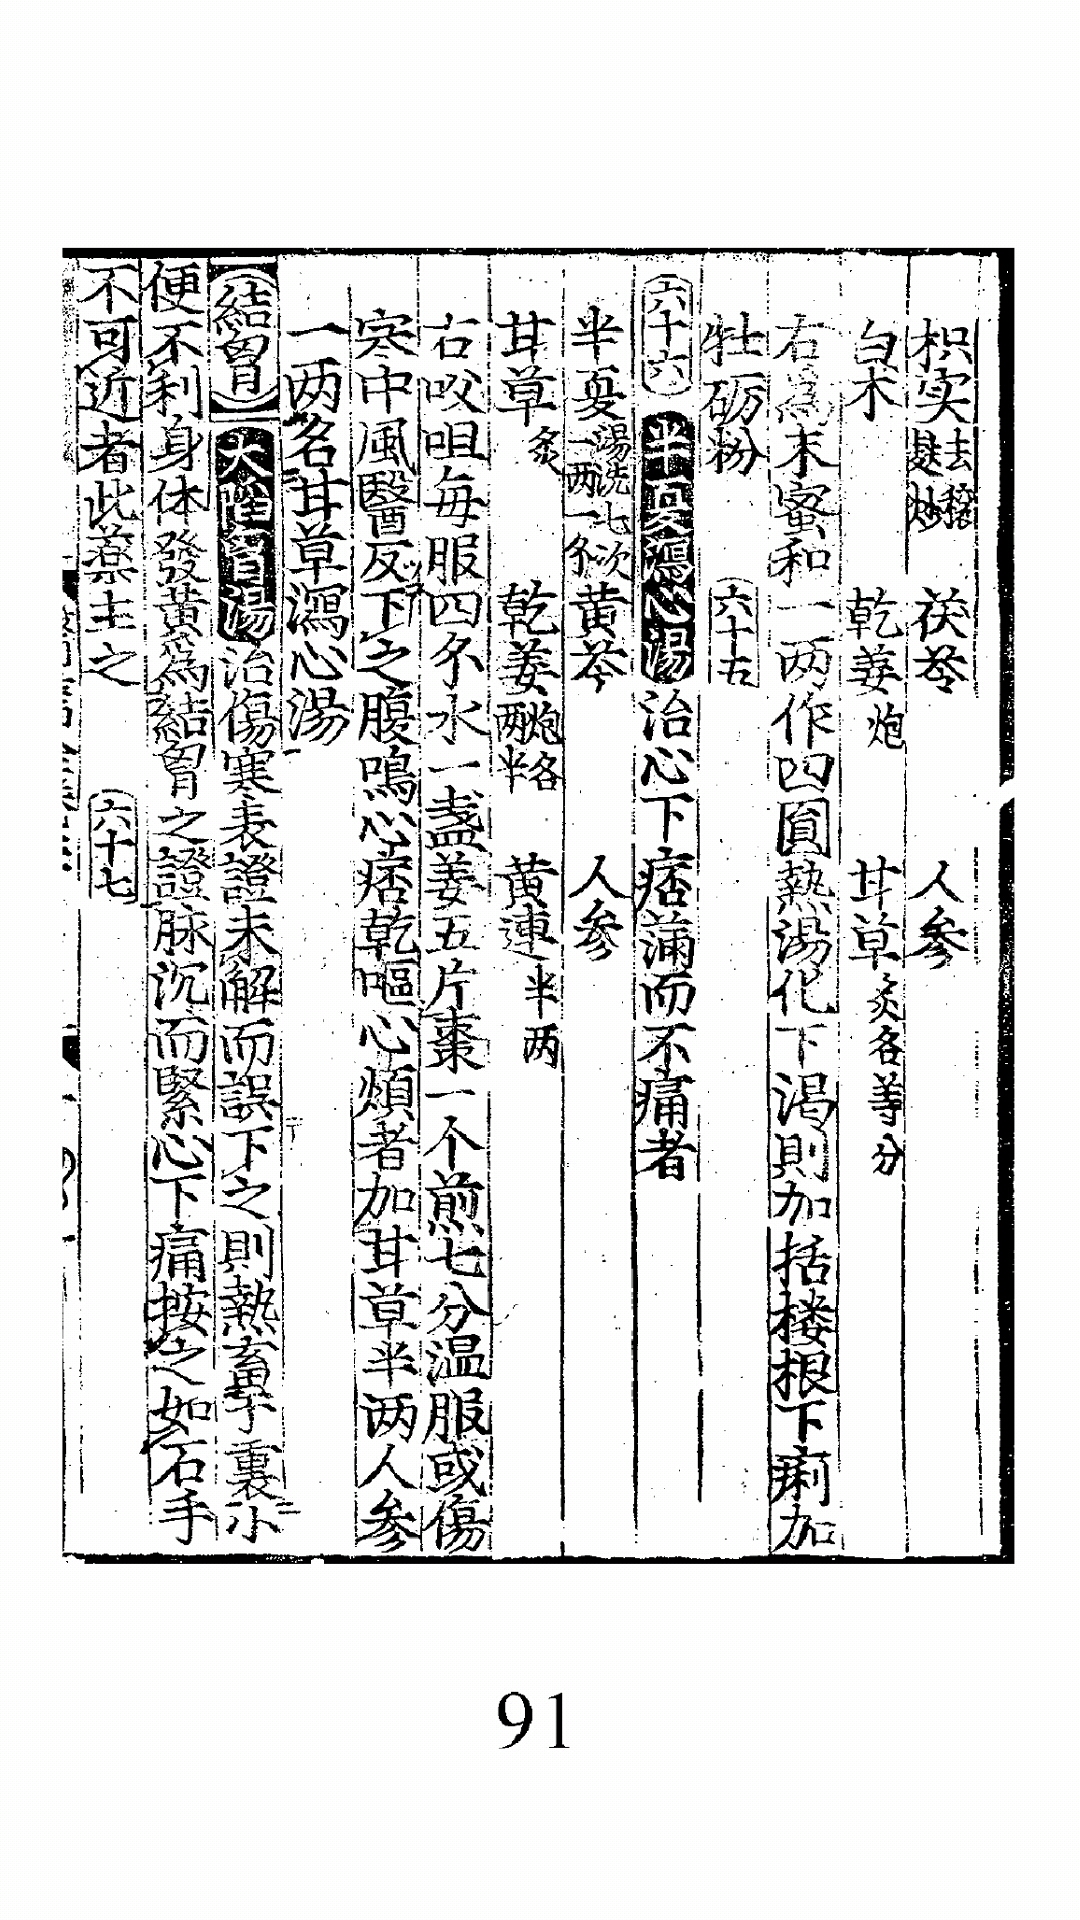 枳实去穰麸炒 茯苓 人参
白术 乾姜炮 甘草炙各等分
右為末蜜和一两作四圓熱湯化下渇則加括楼根下痢加
牡砺粉 六十五
六十六 半夏瀉心湯 治心下痞滿而不痛者
半夏湯洗七次二两一分 黄芩 人参
甘草炙 乾姜炮各两半 黄連半两
右㕮咀每服四分水一盏姜五片棗一个煎七分温服或傷
寒中風醫反下之腹鳴心痞乾嘔心煩者加甘草半两人参
一两名甘草瀉心湯
結胷 大陷胷湯 治傷寒表證未解而誤下之則熱畜于裏小
便不利身体發黄為結胷之證脉沉而緊心下痛按之如石手
不可近者此薬主之 六十七
91